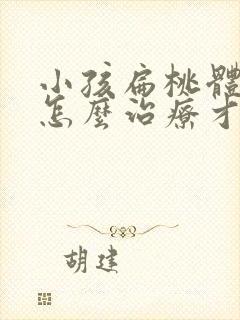 小孩扁桃體
怎麼治療才
胡建